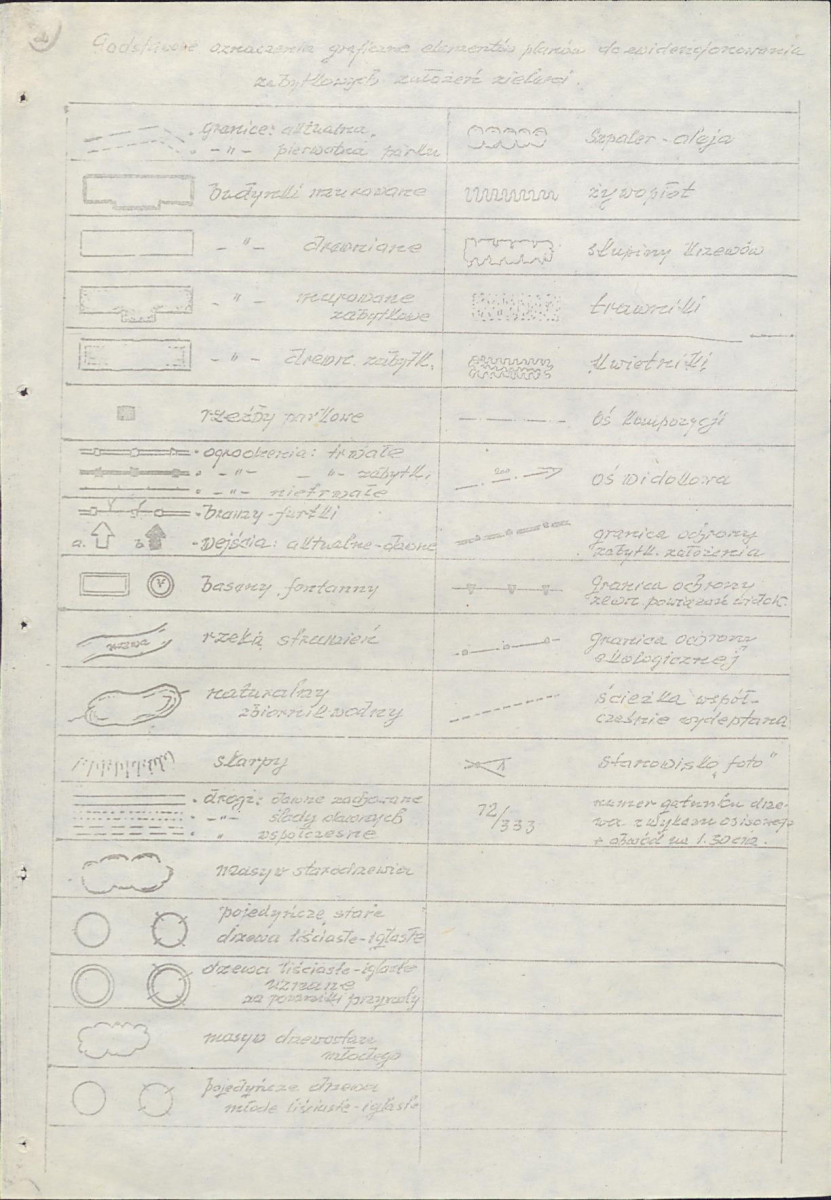 Podstawowe oznaczenia graficzne elementów planów do ewidencjonowania
zabytkowych założeń zieleni.
granice: aktualna,
- " - pierwotna parku
budynki murowane
- " - drewniane
- " - murowane
zabytkowe
- " - drewn. zabytk.
rzeźby parkowe
• ogrodzenia: trwałe
• - " - - " - zabytk.
• - " - nietrwałe
• bramy-furtki
a. b. • wejścia: aktualne-dawne
baseny, fontanny
rzeka, strumień
naturalny
zbiornik wodny
skarpy
• drogi: dawne zachowane
• - " - ślady dawnych
• " współczesne
masyw starodrzewia
pojedyńcze stare
drzewa liściaste-iglaste
drzewa liściaste-iglaste
uznane
za pomniki przyrody
masyw drzewostanu
młodego
pojedyńcze drzewa
młode liściaste-iglaste
Szpaler-aleja
żywopłot
skupiny krzewów
trawniki
kwietniki
oś kompozycji
oś widokowa
granica ochrony
zabytk. założenia
granica ochrony
zewn. powiązań widok.
granica ochrony
ekologicznej
ścieżka współ-
cześnie wydeptana
stanowisko "foto"
72/333
numer gatunku drze-
wa z wykazu opisowego
+ obwód na 1.30 cm.